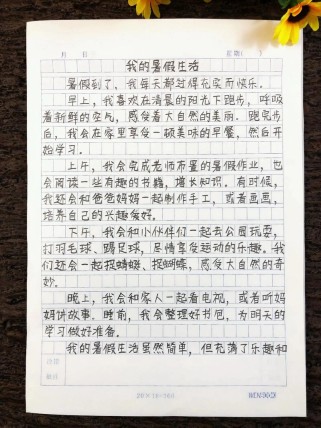 月 日 星期( )
我的暑假生活
暑假到了，我每天都过得充实而快乐。
早上，我喜欢在清晨的阳光下跑步，呼吸
着新鲜的空气，感受着大自然的美丽。跑完步
后，我会在家里享受一顿美味的早餐，然后开
始学习。
上午，我会完成老师布置的暑假作业，也
会阅读一些有趣的书籍，增长知识。有时候，
我还会和爸爸妈妈一起制作手工，或者画画，
培养自己的兴趣爱好。
下午，我会和小伙伴们一起去公园玩耍，
打羽毛球、踢足球，尽情享受运动的乐趣。我
们还会一起捉蜻蜓、捉蝴蝶，感受大自然的奇
妙。
晚上，我会和家人一起看电视，或者听妈
妈讲故事。睡前，我会整理好书包，为明天的
学习做好准备。
我的暑假生活虽然简单，但充满了乐趣和